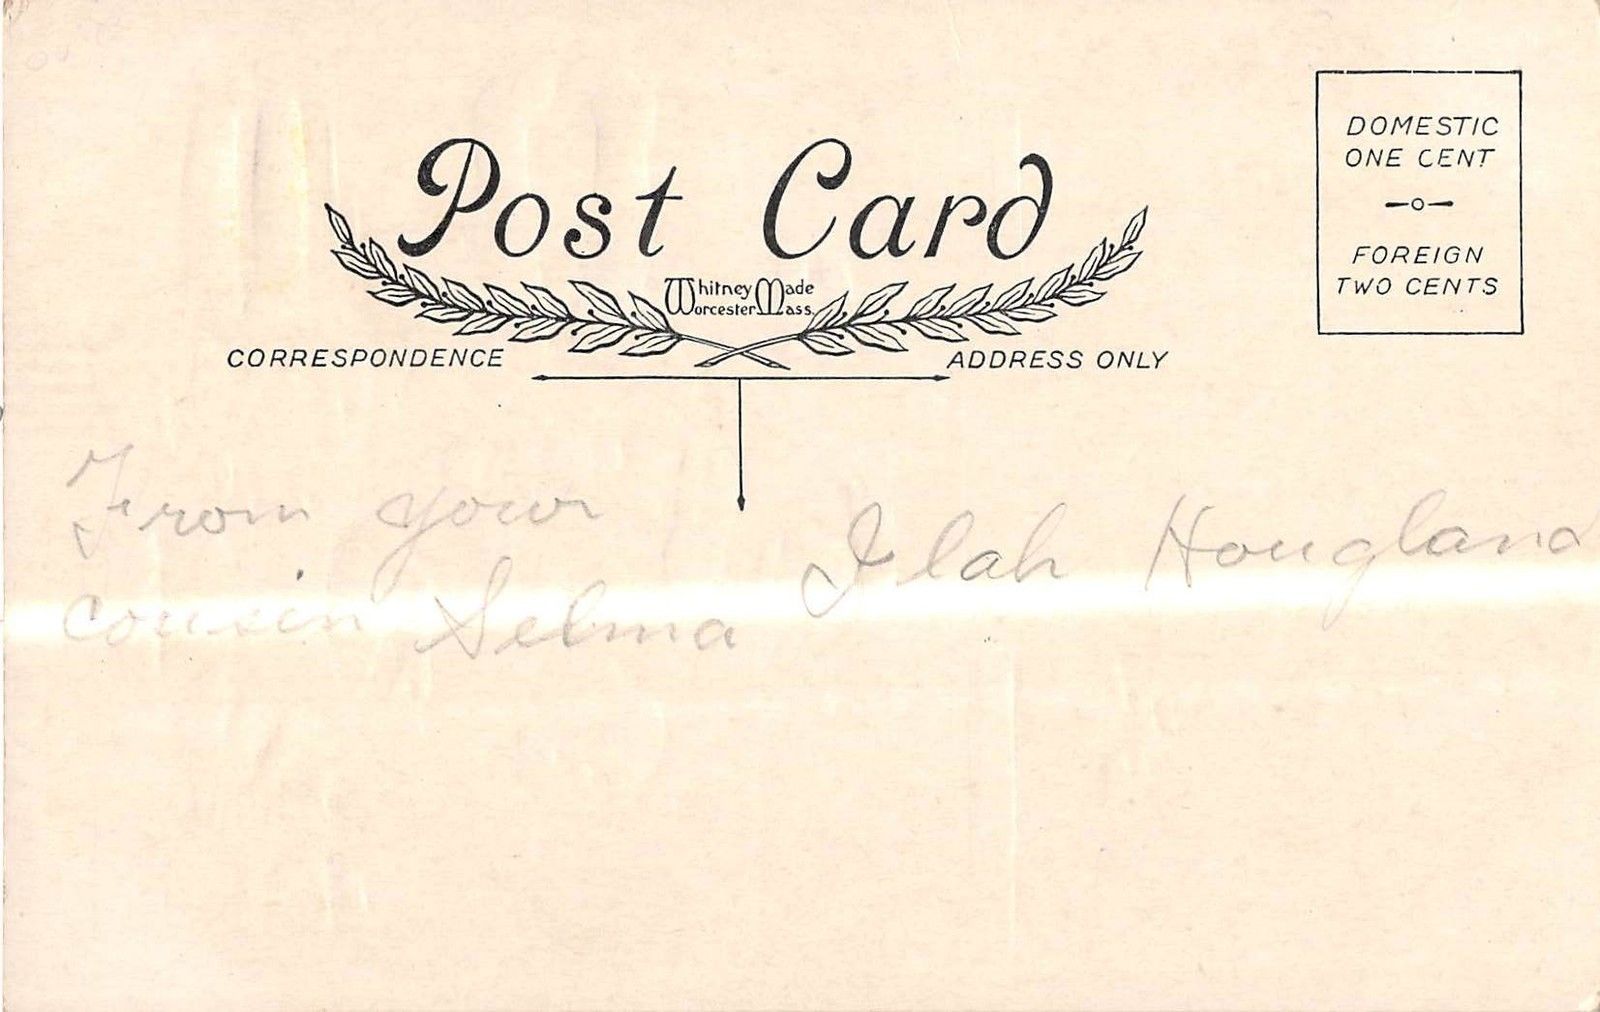 Post Card
Whitney Made
Worcester Mass.
DOMESTIC
ONE CENT
FOREIGN
TWO CENTS
CORRESPONDENCE
ADDRESS ONLY
From your
cousin Selma
Ilah Hougland